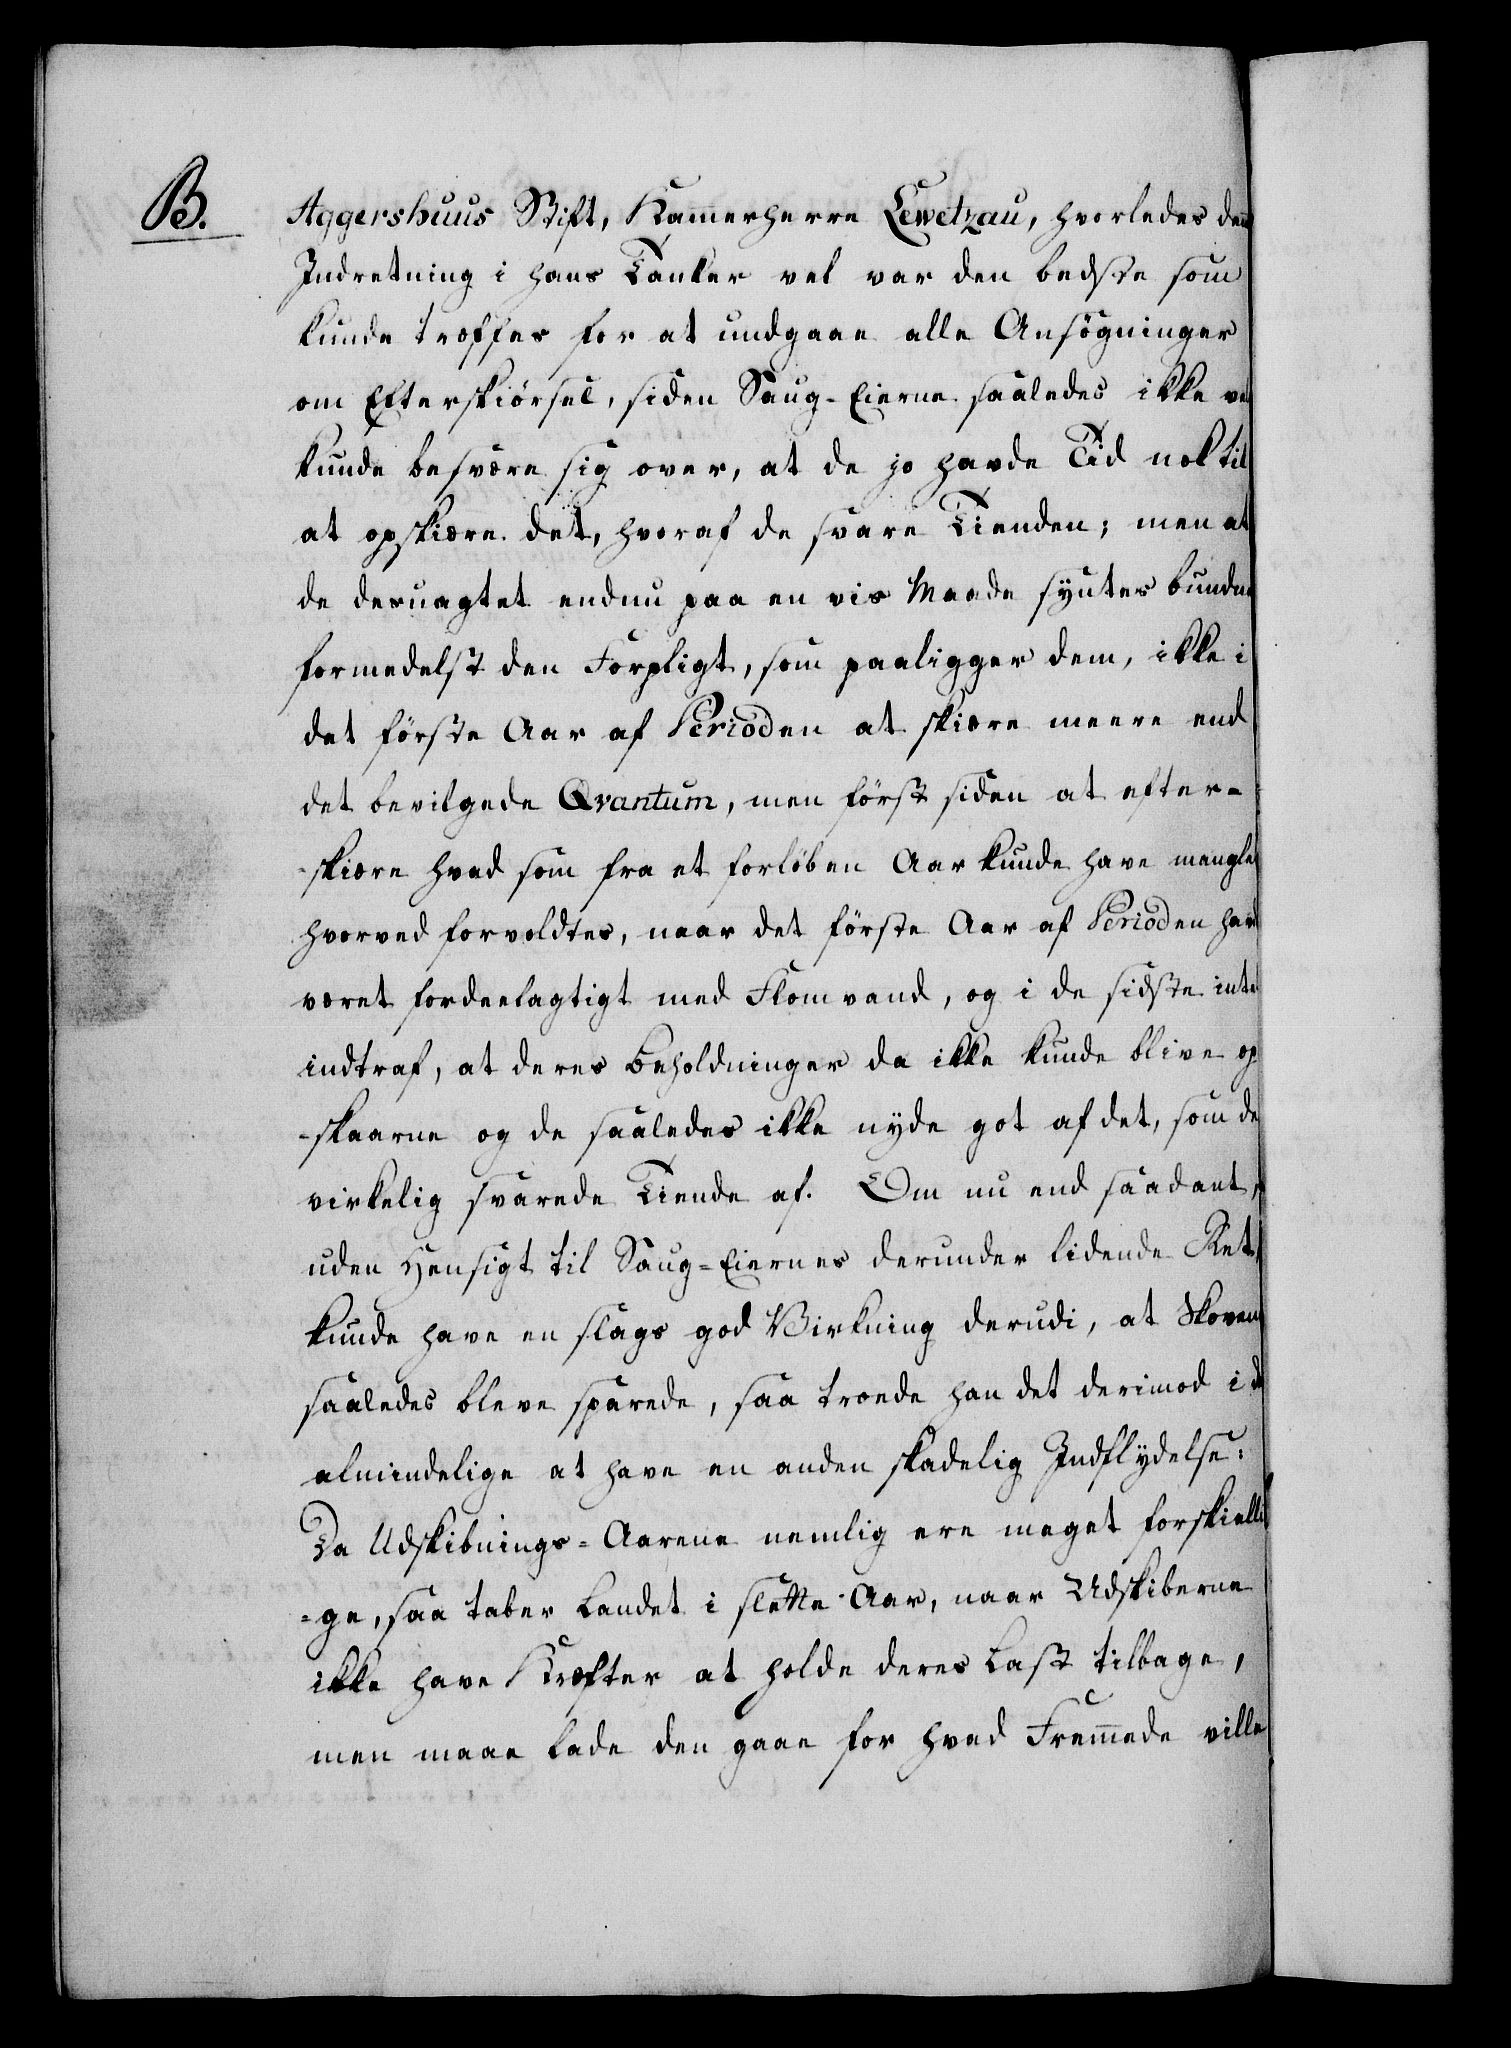 B.
Aggershuus Stift, Kammerherre Lewetzau, hvorledes den
Indretning i hans Tanker vel var den bedste som
kunde træffes for at undgaae alle Ansøgninger
om Efterskiørsel, siden Saug-Eierne saaledes ikke vel
kunde besvære sig over, at de jo havde Tid nok til
at opskiære det, hvoraf de svare Tienden; men at
de desuagtet endnu paa en vis Maade syntes bundne
formedelst den Forpligt, som paaligger dem, ikke i
det første Aar af Perioden at skiære meere end
det bevilgede Qvantum, men først siden at efter-
-skiære hvad som fra et forløben Aar kunde have manglet
hvorved forvoldtes, naar det første Aar af Perioden havde
været fordeelagtigt med Flomvand, og i de sidste intet
indtraf, at deres Beholdninger da ikke kunde blive op
-skaarne og de saaledes ikke nyde got af det, som de
virkelig svarede Tiende af. Om nu end saadant,
uden Hensigt til Saug-Eiernes derunder lidende Ret,
kunde have en slags god Virkning derudi, at Skovene
saaledes bleve sparede, saa troede han det derimod i det
almindelige at have en anden skadelig Indflydelse:
Da Udskibnings-Aarene nemlig ere meget forskielli
-ge, saa taber Landet i slette Aar, naar Udskiberne
ikke have Kræfter at holde deres Last tilbage,
men maae lade den gaae for hvad Fremmede ville